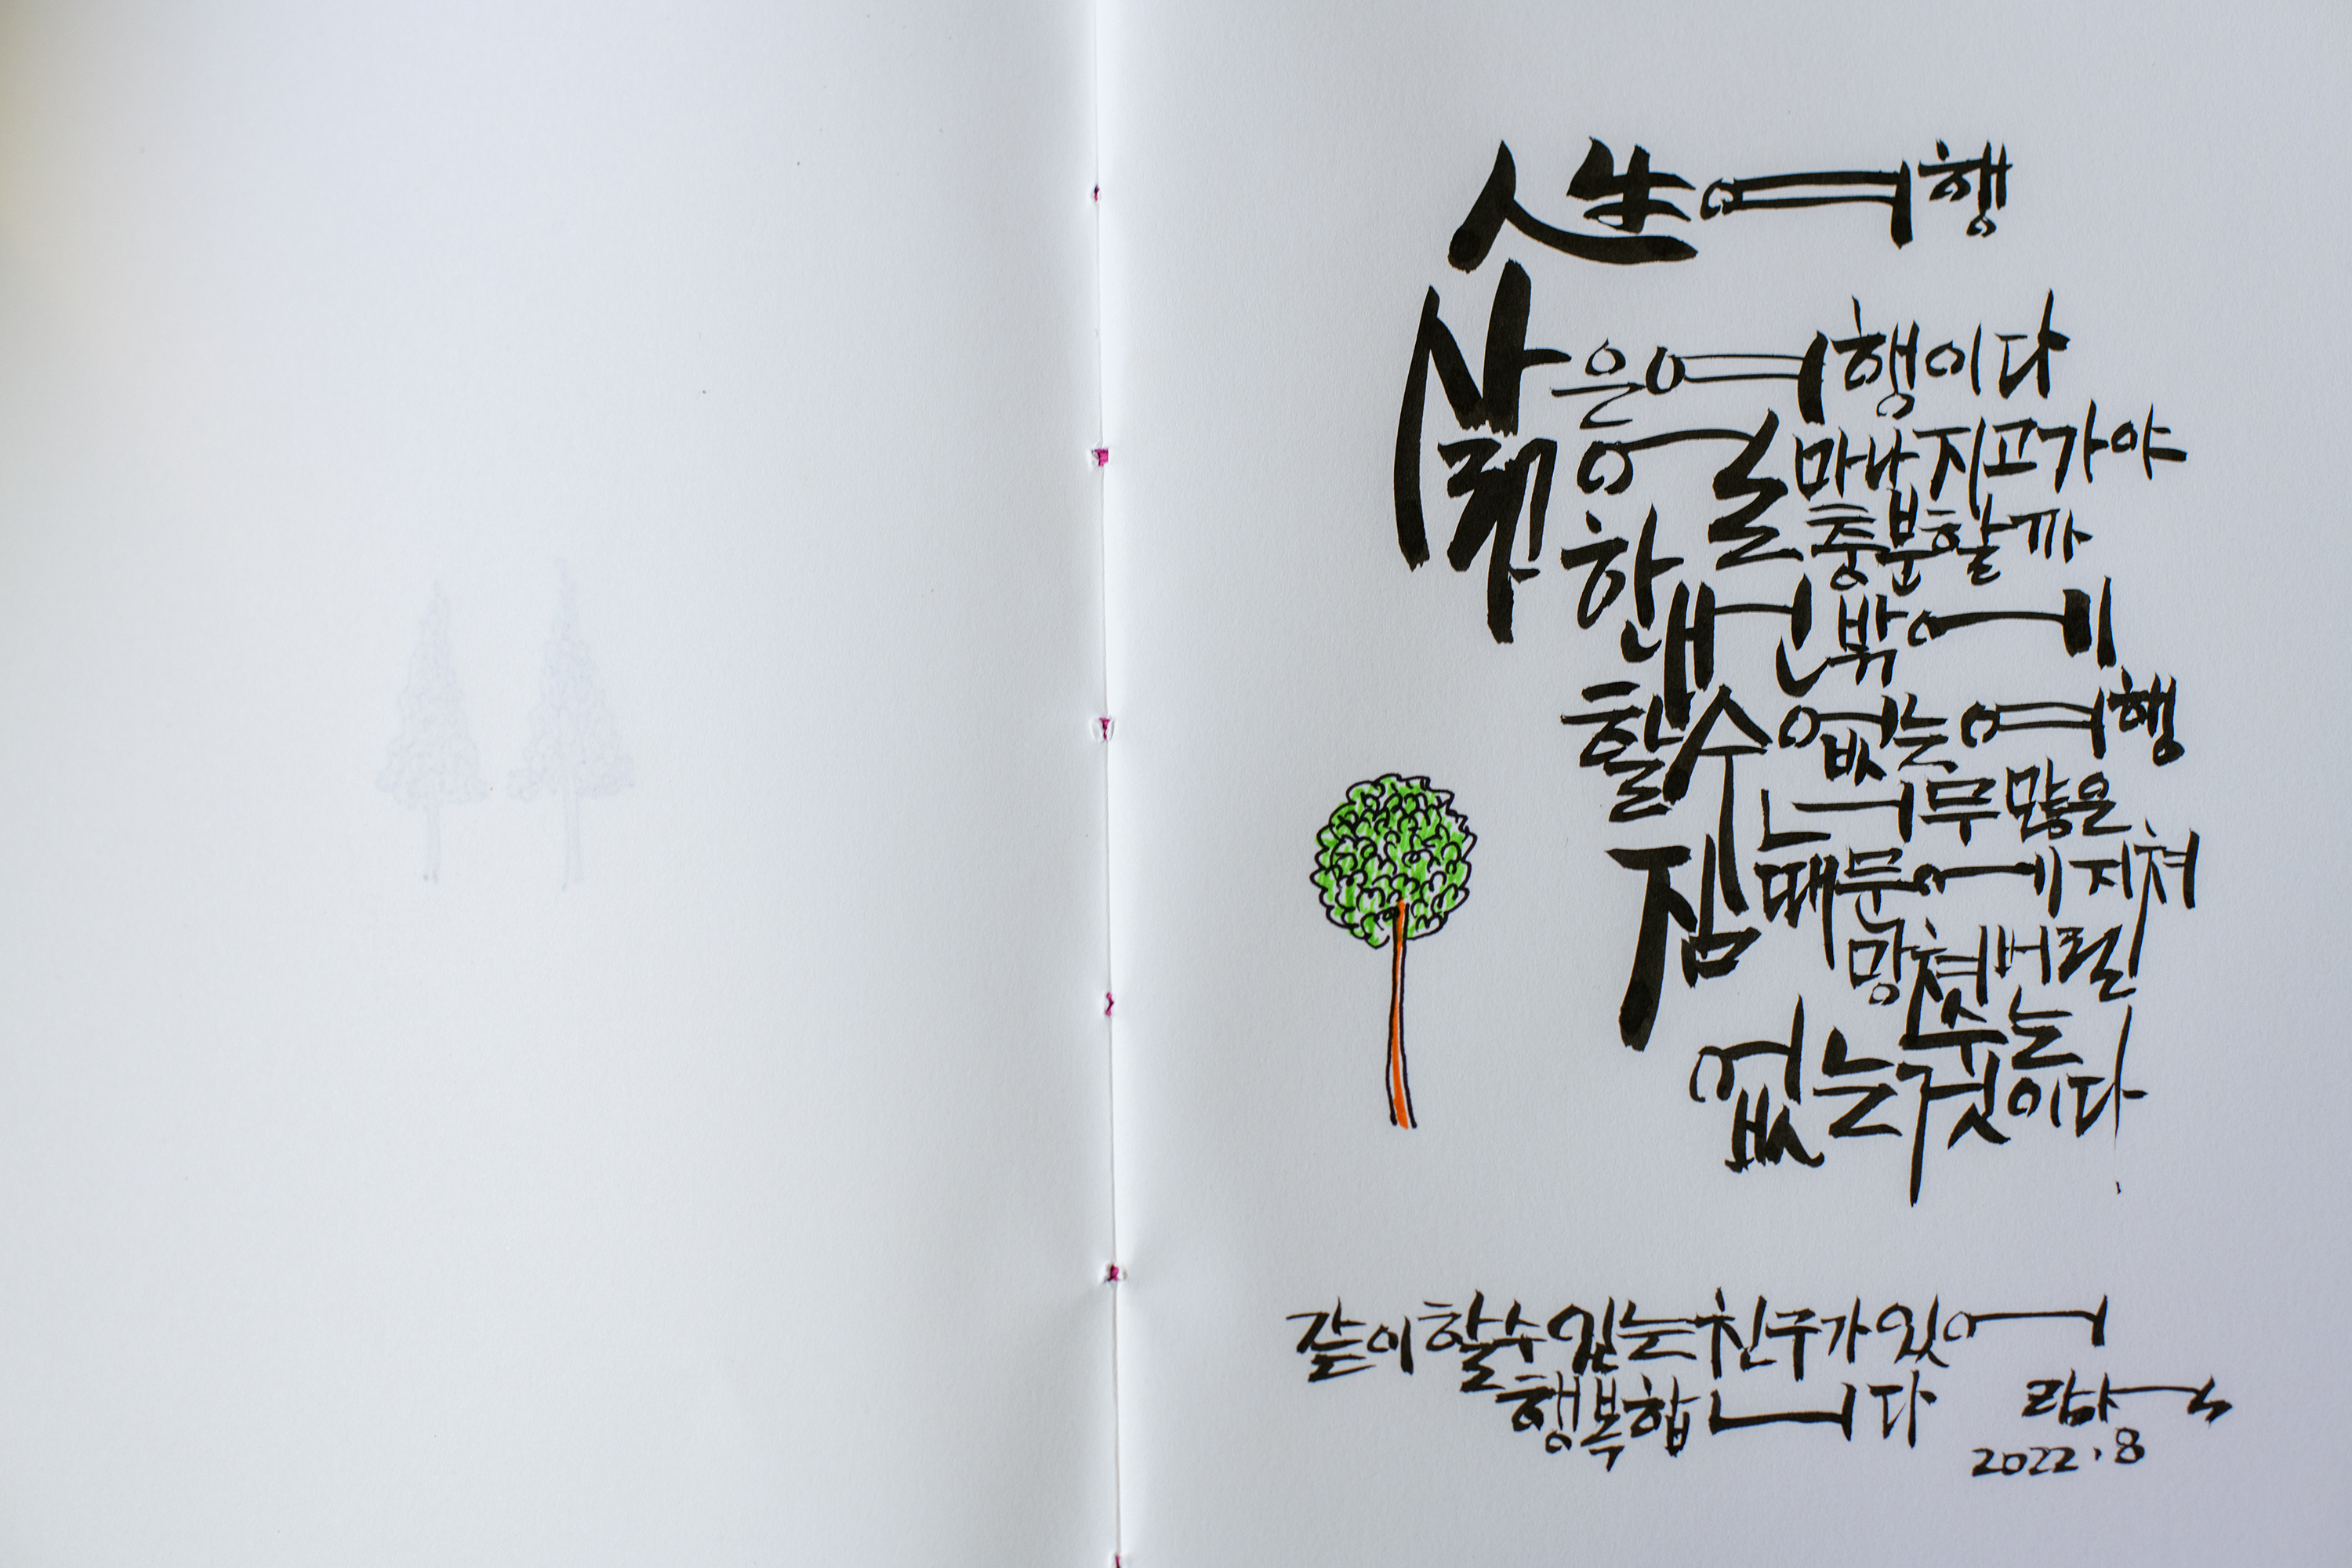 人生여행
삶은여행이다
얼마나지고가야
충분할까
한번밖에
할수없는여행
너무많은
짐때문에지쳐
망쳐버릴
수는
없는것이다
같이할수있는친구가있어
행복합니다
2022.8